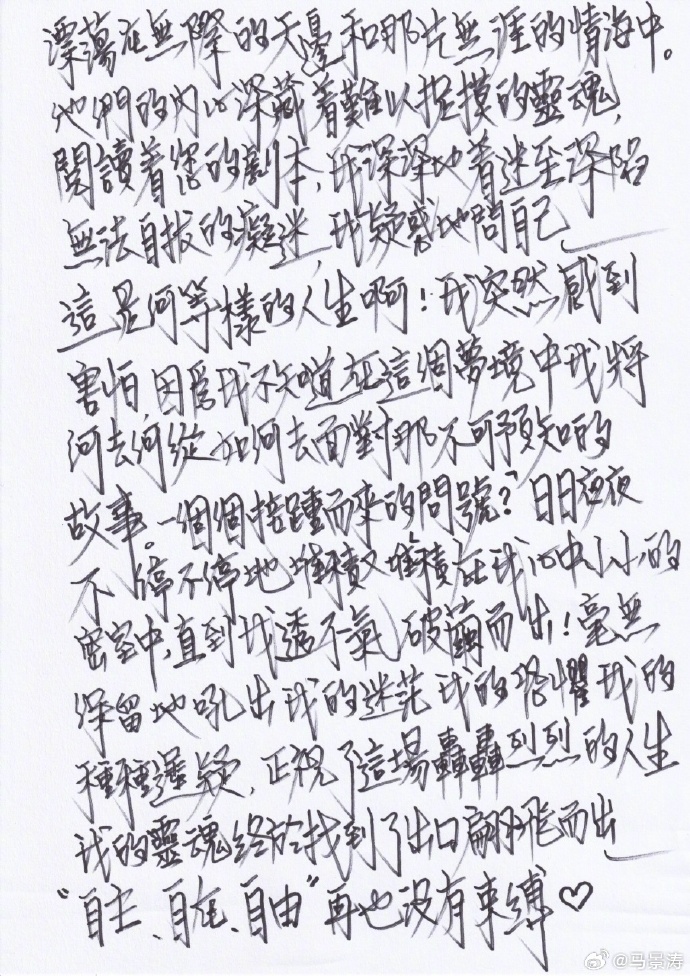 漂蕩在無際的天邊和那片無涯的情海中。
他們的內心深藏着難以捉摸的靈魂,
閱讀着您的劇本,我深深地着迷至深陷
無法自拔的癡迷,我疑惑地問自己
這是何等樣的人生啊!我突然感到
害怕,因為我不知道在這個夢境中我將
何去何從如何去面對那不可預知的
故事。一個個接踵而來的問號?日日夜夜
不停不停地堆積又堆積在我心中小小的
密室中,直到我透不氣破繭而出!毫無
保留地吼出我的迷茫我的恐懼我的
種種遲疑,正視了這場轟轟烈烈的人生
我的靈魂終於找到了出口翩翩飛而出
“自主、自在、自由”再也没有束縛♡
@马景涛